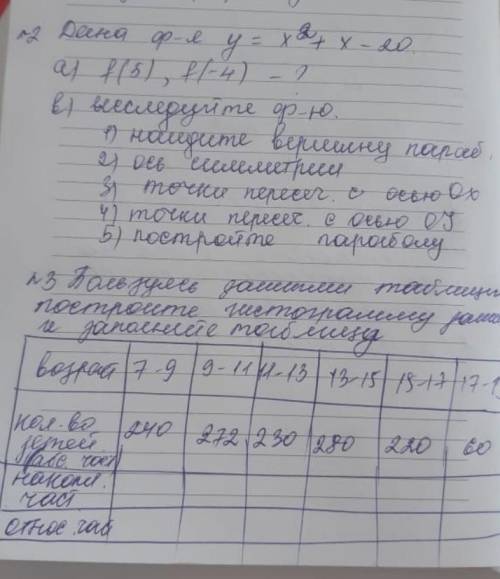 №2 Дана ф-я y = x² + x - 20.
а) f(5), f(-4) - ?
в) исследуйте ф-ю.
1) найдите вершину параб.
2) ось симметрии
3) точки пересеч. с осью Ox
4) точки пересеч. с осью OY
5) постройте параболу
№3 Пользуясь данными таблицы
постройте гистограмму
и заполните таблицу
возраст 7-9 9-11 11-13 13-15 15-17 17-1
кол-во 240 272 230 280 220 60
детей
(абс. част)
накопл.
част.
относ. час